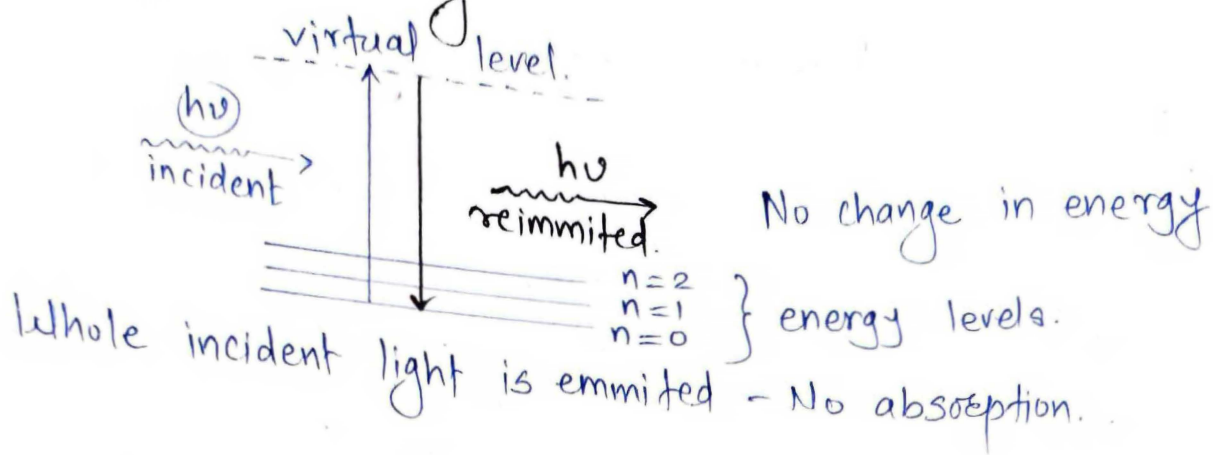 virtual level.
hν
incident
hν
reimmited.
No change in energy
n=2
n=1
n=0
} energy levels.
Whole incident light is emmited - No absorption.